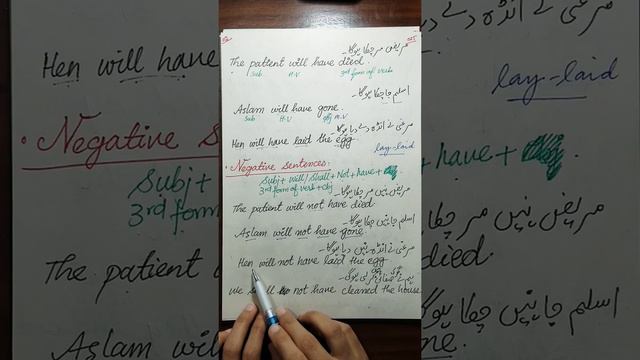 مریض مر چکا ہوگا۔
The patient will have died.
Sub. H.V 3rd form of verb
اسلم جا چکا ہوگا۔
Aslam will have gone.
Sub H.V M.V
مرغی نے انڈہ دے دیا ہوگا۔
Hen will have laid the egg
lay-laid
• Negative Sentences:
Subj + will/Shall + Not + have +
3rd form of verb + obj
مریض نہیں مر چکا ہوگا۔
The patient will not have died.
اسلم جا نہیں چکا ہوگا۔
Aslam will not have gone.
مرغی نے انڈہ نہیں دیا ہوگا۔
Hen will not have laid the egg
We not have cleaned the house